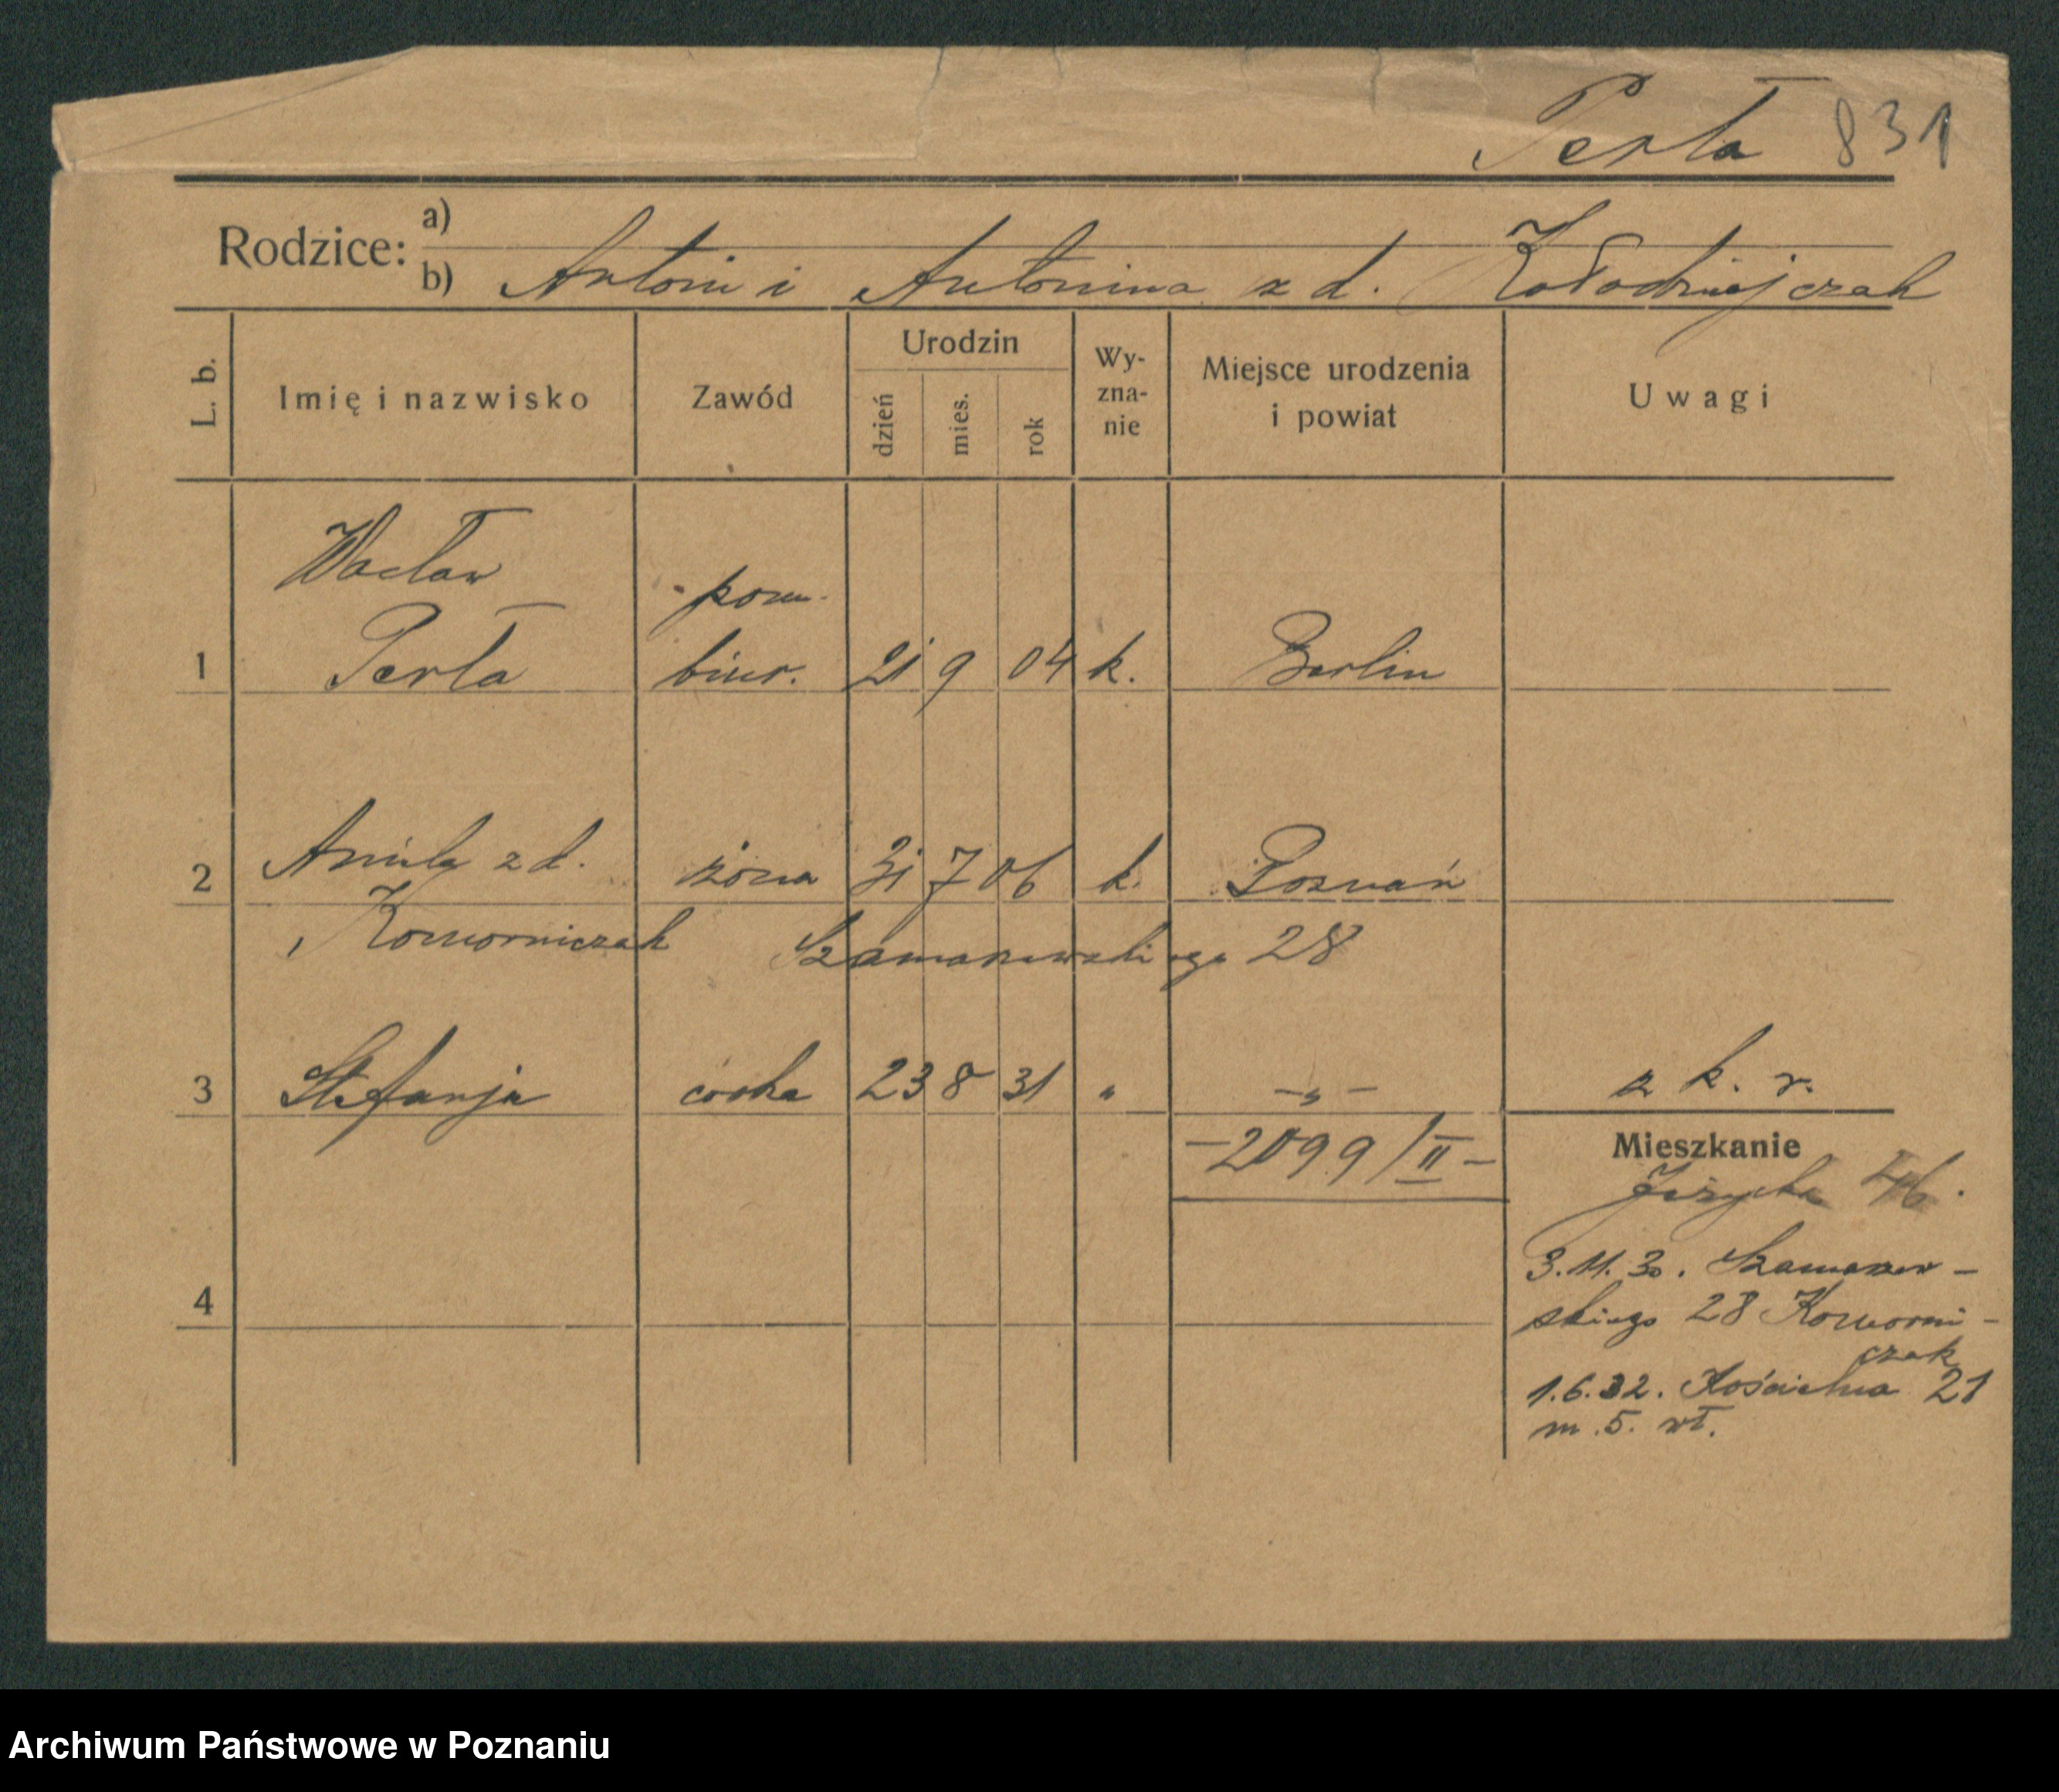 Perła 831
Rodzice: a)
b) Antoni i Antonina z d. Kołodziejczak
L. b.
Imię i nazwisko
Zawód
Urodzin
dzień
mies.
rok
Wy-
zna-
nie
Miejsce urodzenia
i powiat
Uwagi
Wacław
pom.
1 Perła biur. 21 9 04 k. Berlin
2 Aniela z d. żona 31 7 06 k. Poznań
Komorniczak Szamarzewskiego 28
3 Stefanja córka 23 8 31 " -"- z k. r.
-2099/II-
Mieszkanie
Jeżycka 46.
3.11.30. Szamarzew-
skiego 28 Komorni-
czak
1.6.32. Kościelna 21
m. 5. wł.
4
Archiwum Państwowe w Poznaniu